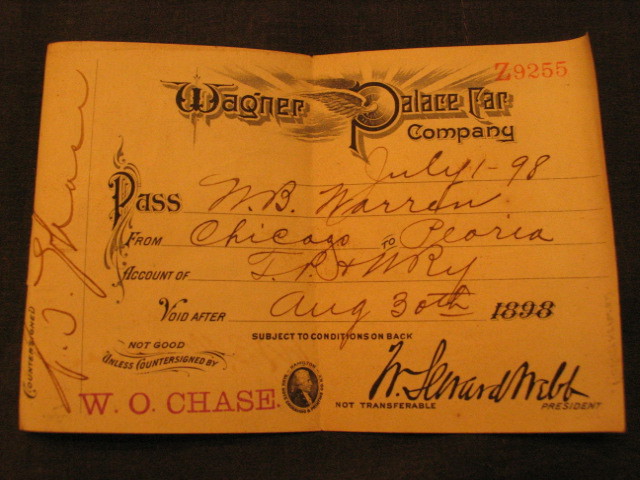 Z9255
Wagner Palace Car
Company
July 1-98
Pass W. B. Warren
From Chicago to Peoria
Account of T. P. & W Ry
Void after Aug 30th 1898
Subject to conditions on back
Not good
Unless countersigned by
W. O. CHASE.
W. Seward Webb
Not transferable
President
Countersigned